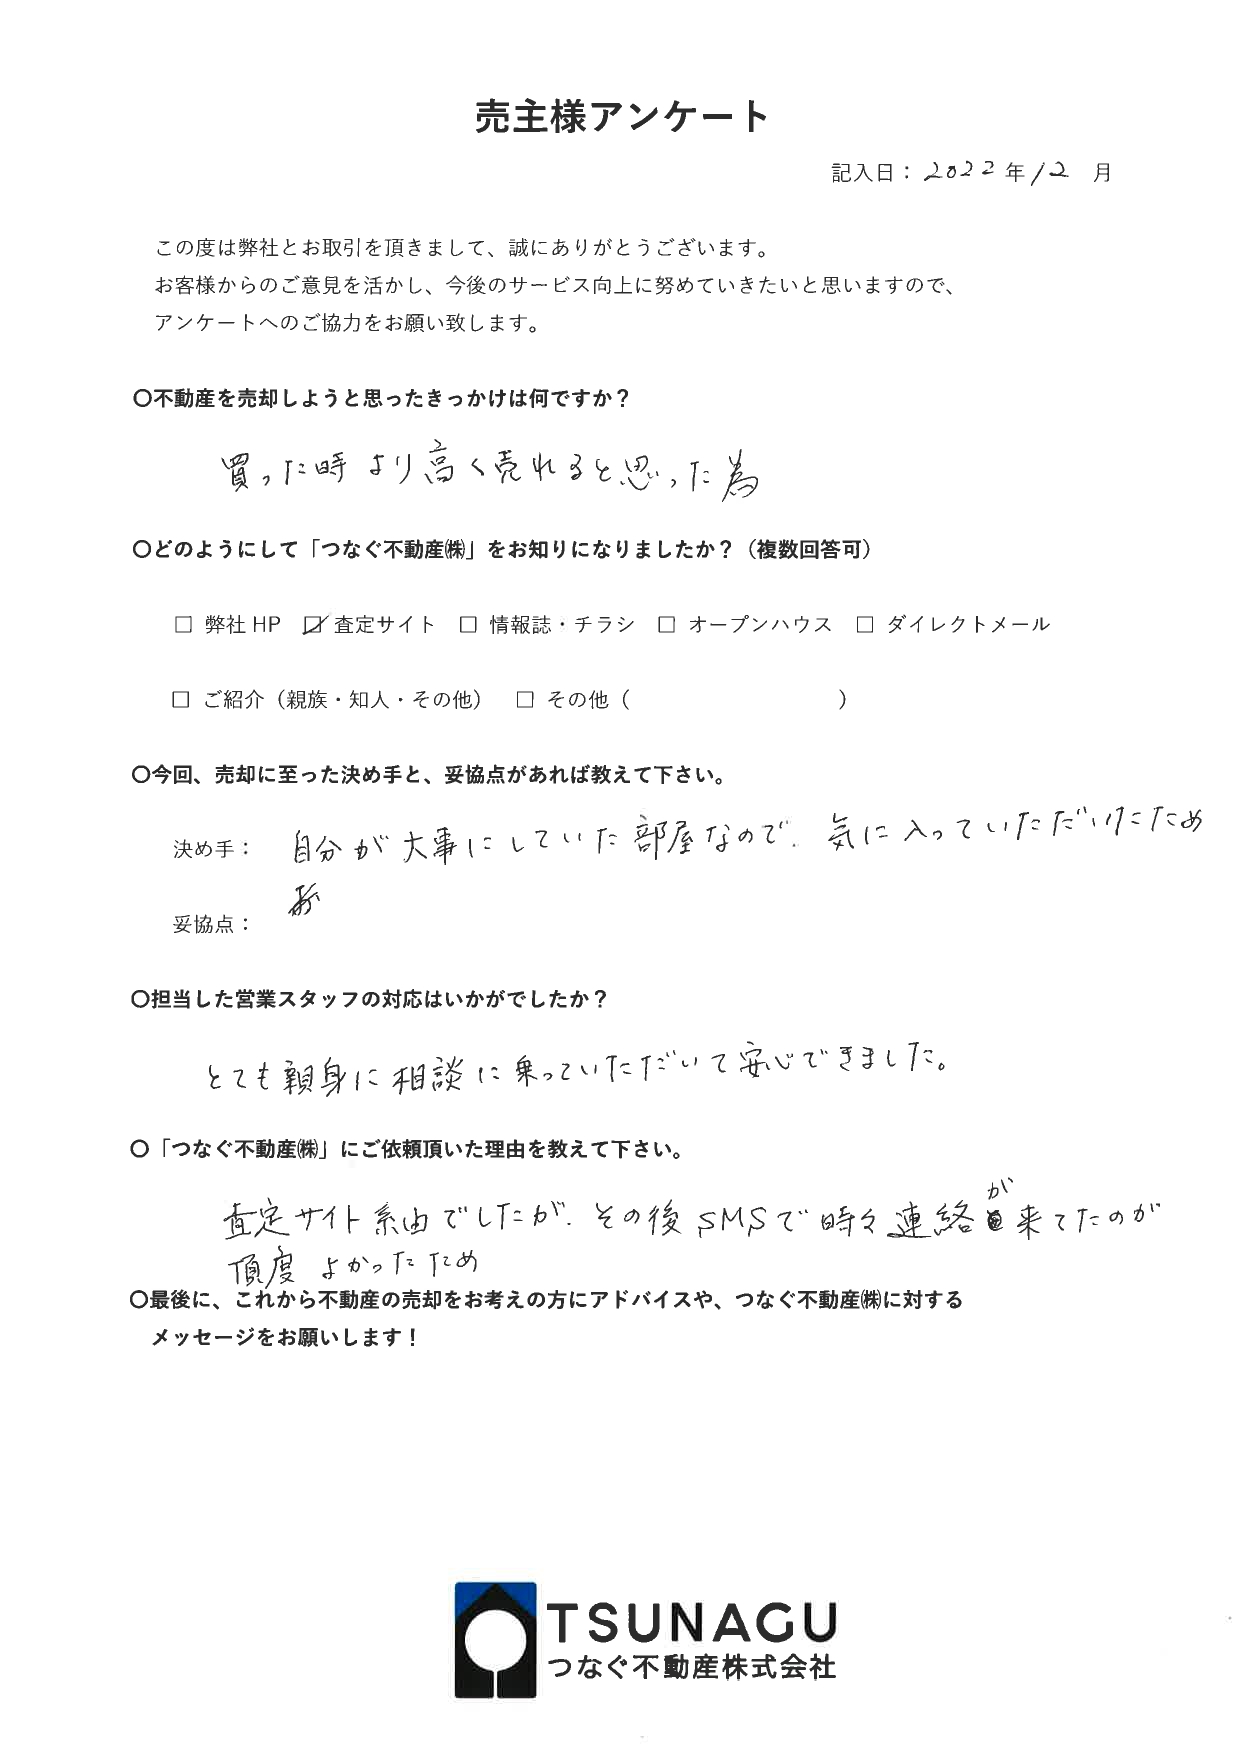 売主様アンケート
記入日：2022年12月
この度は弊社とお取引を頂きまして、誠にありがとうございます。
お客様からのご意見を活かし、今後のサービス向上に努めていきたいと思いますので、
アンケートへのご協力をお願い致します。
〇不動産を売却しようと思ったきっかけは何ですか？
買った時より高く売れると思った為
〇どのようにして「つなぐ不動産㈱」をお知りになりましたか？（複数回答可）
□ 弊社 HP ☑ 査定サイト □ 情報誌・チラシ □ オープンハウス □ ダイレクトメール
□ ご紹介（親族・知人・その他） □ その他（ ）
〇今回、売却に至った決め手と、妥協点があれば教えて下さい。
決め手： 自分が大事にしていた部屋なので、気に入っていただいたため
妥協点：
〇担当した営業スタッフの対応はいかがでしたか？
とても親身に相談に乗っていただいて安心できました。
〇「つなぐ不動産㈱」にご依頼頂いた理由を教えて下さい。
査定サイト系由でしたが、その後SMSで時々連絡が来てたのが
頂度よかったため
〇最後に、これから不動産の売却をお考えの方にアドバイスや、つなぐ不動産㈱に対する
メッセージをお願いします！
TSUNAGU
つなぐ不動産株式会社